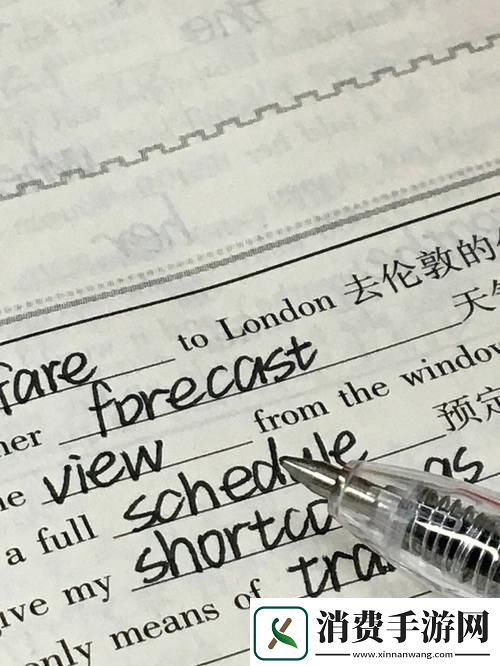 fare to London 去伦敦的
her forecast 天气
view from the window
a full schedule 预定
give my as
only means of
消费手游网
www.xinnanwang.com